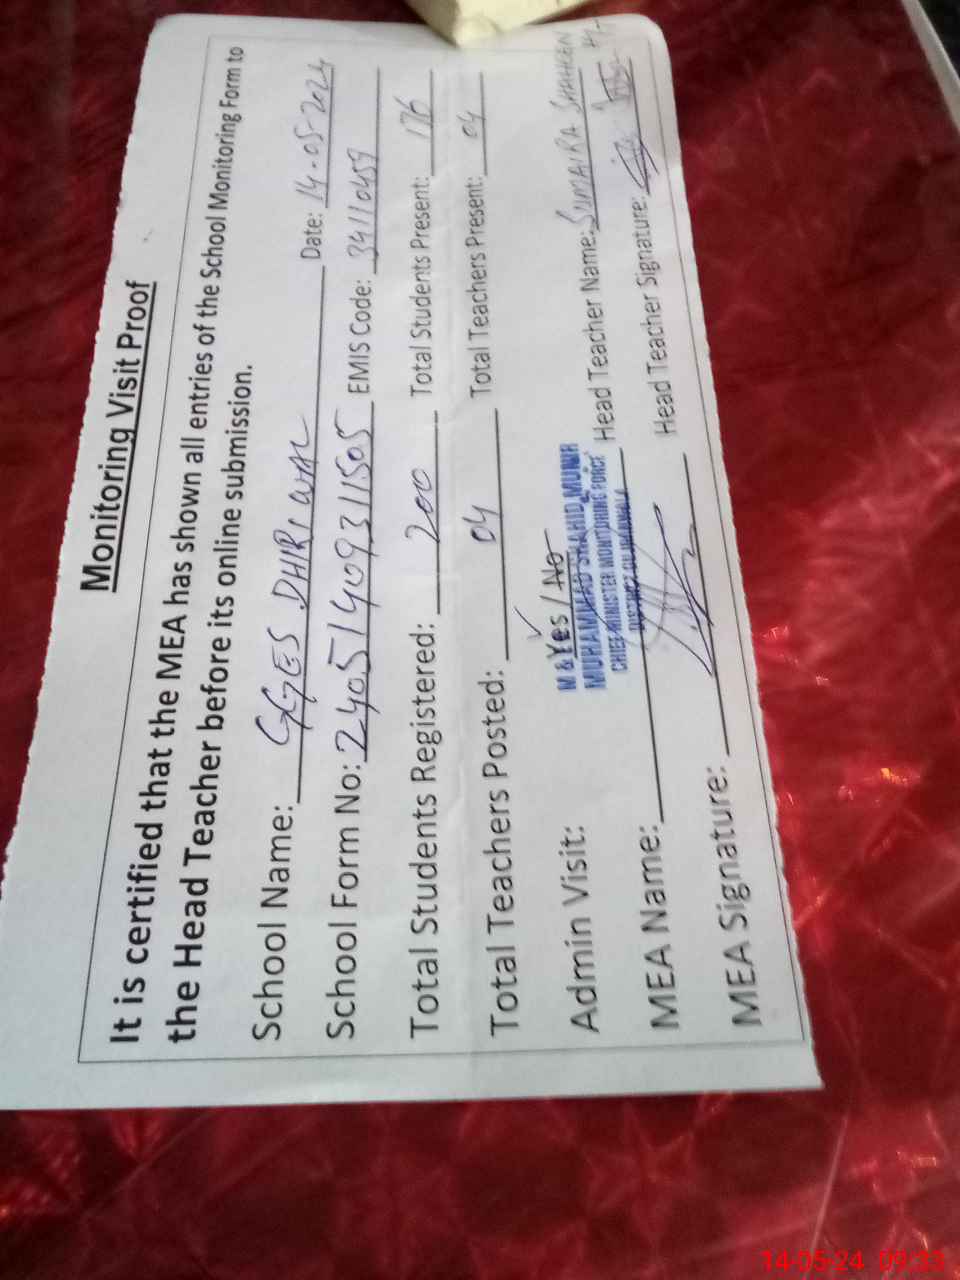 Monitoring Visit Proof
It is certified that the MEA has shown all entries of the School Monitoring Form to
the Head Teacher before its online submission.
School Name: GGES DHIRI WAL Date: 14-05-2024
School Form No: 240514093111505 EMIS Code: 34110459
Total Students Registered: 200 Total Students Present: 176
Total Teachers Posted: 04 Total Teachers Present: 04
Admin Visit: Yes / No
M &
MUHAMMAD SHAHID MUNIR
CHIEF MINISTER MONITORING FORCE
DISTRICT GUJRANWALA
MEA Name: Head Teacher Name: SUMAIRA SHAHEEN
MEA Signature: Head Teacher Signature:
14-05-24 09:33